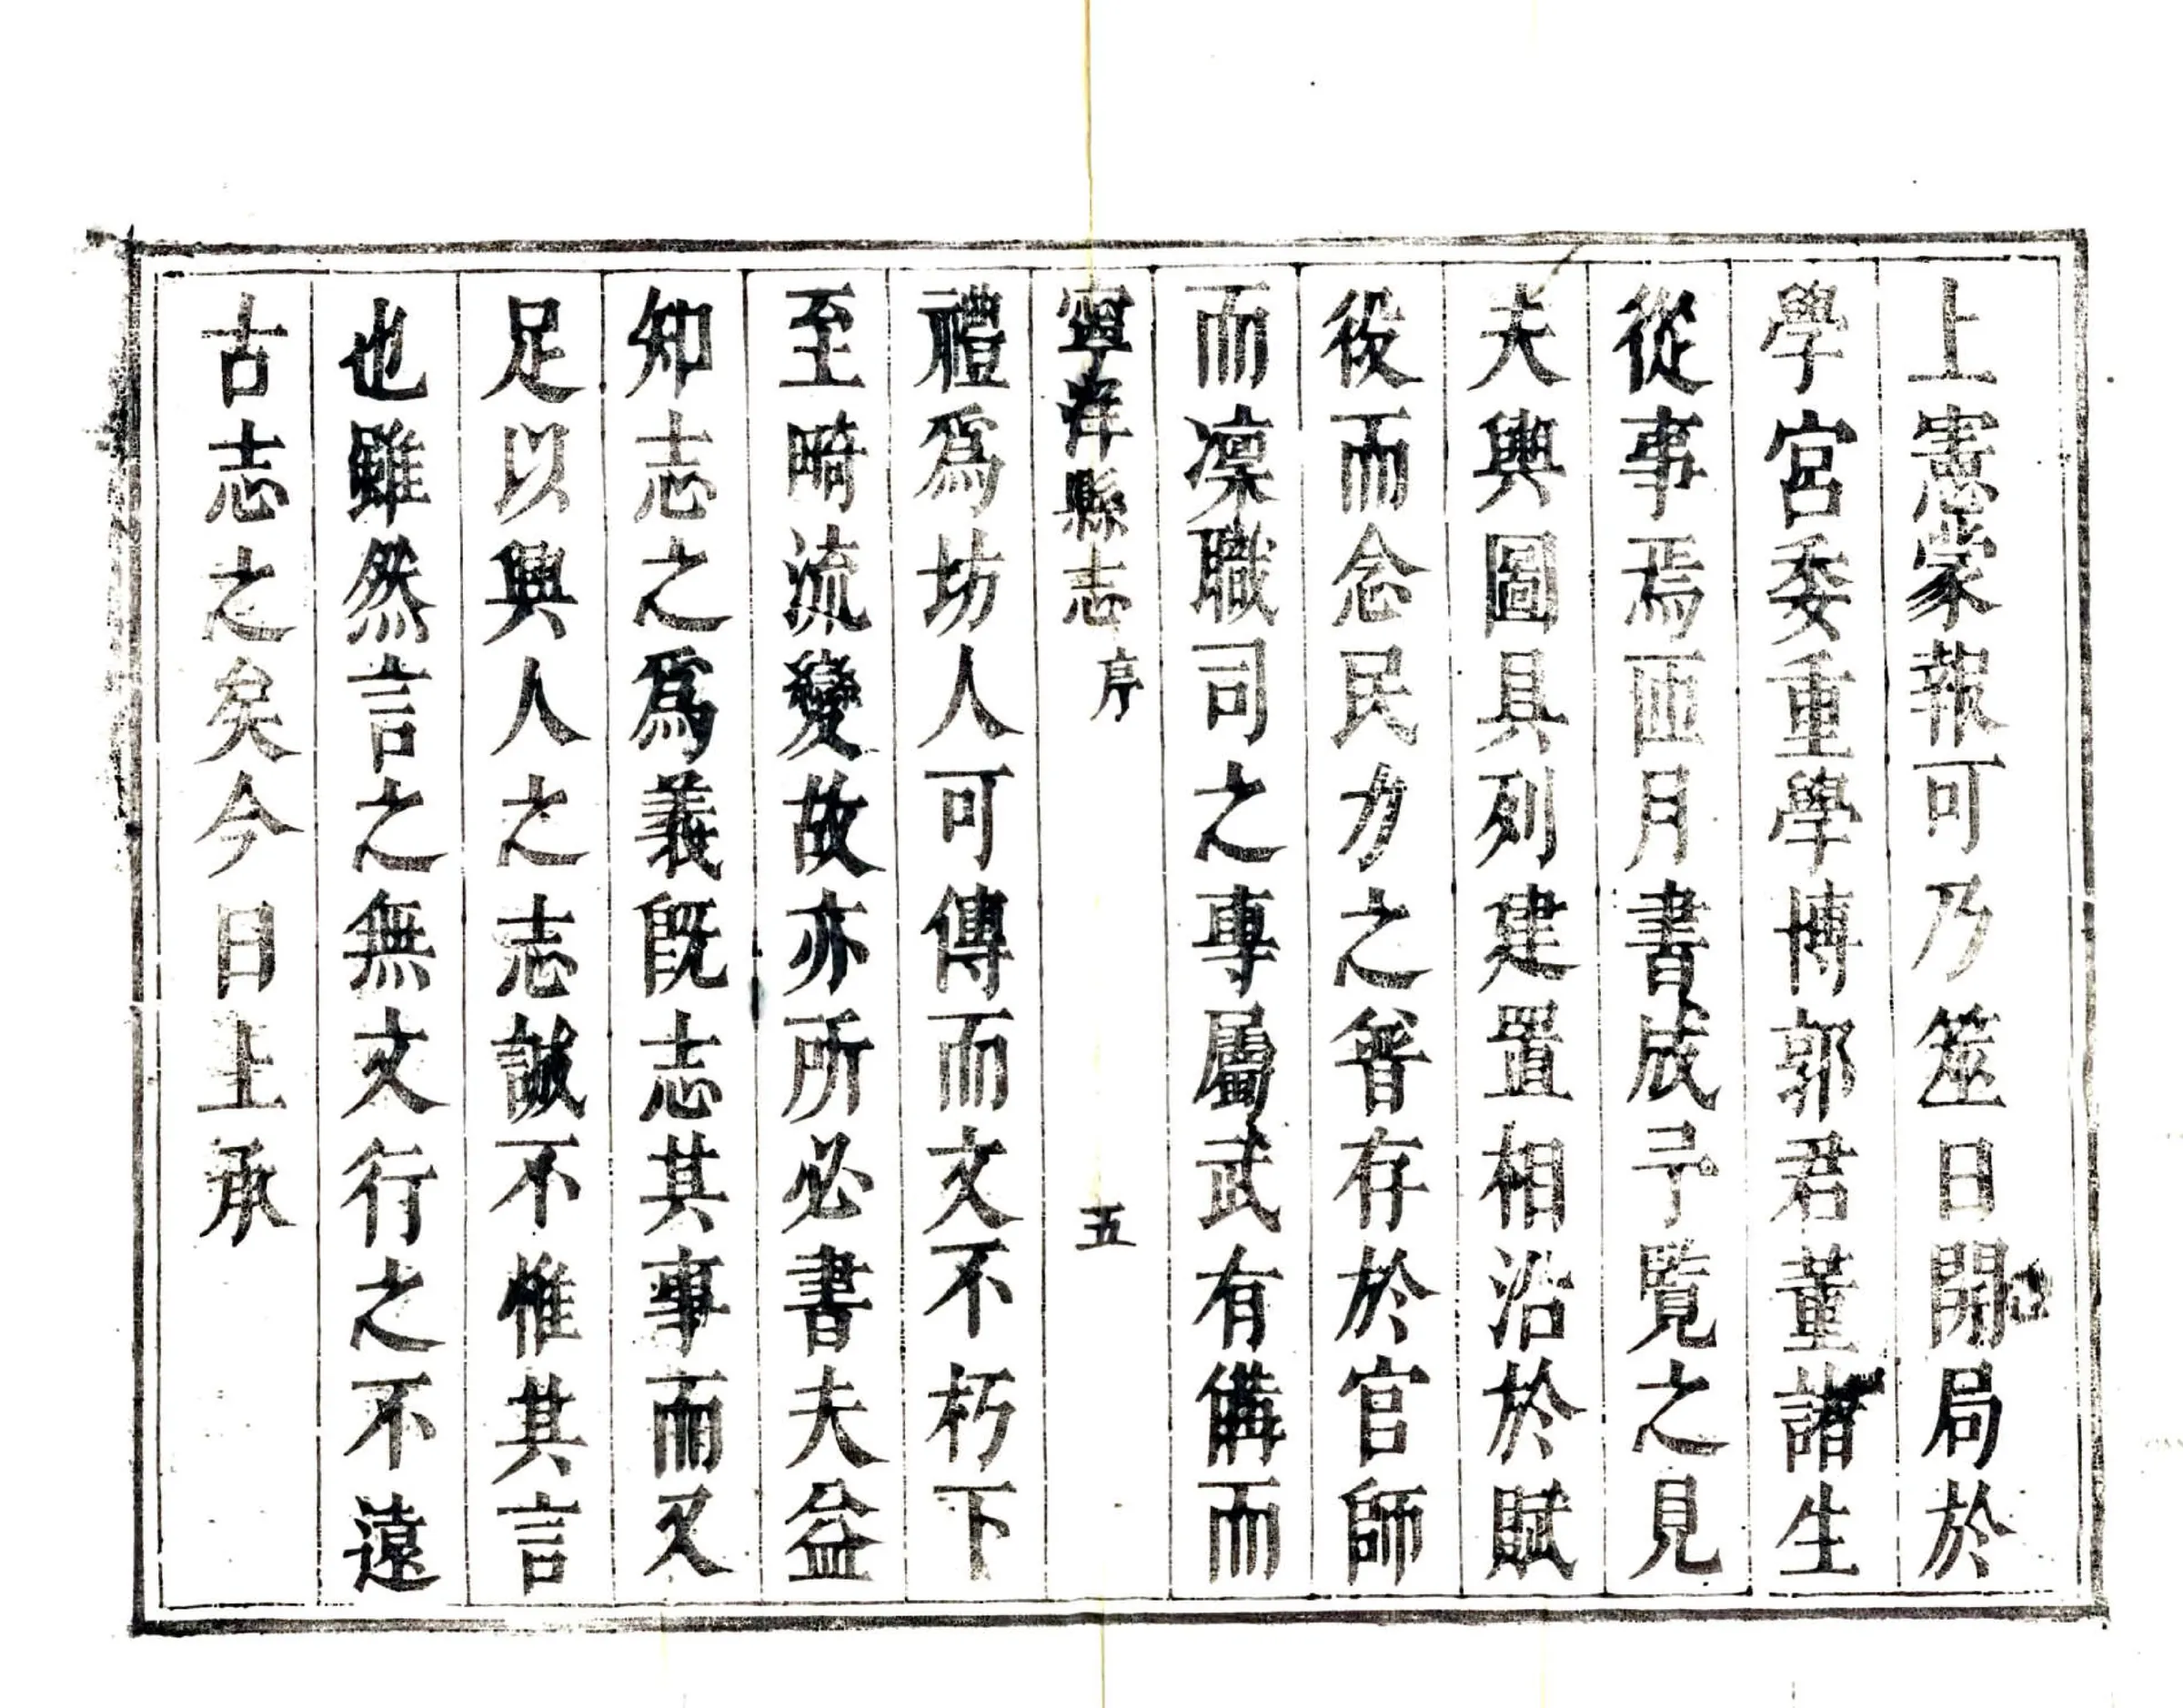 上憲蒙報可乃筮日開局於
學宮委重學博郭君董諸生
從事焉匝月書成予覽之見
夫輿圖具列建置相沿於賦
役而念民力之普存於官師
而凜職司之專屬武有備而
寧洋縣志 序 五
禮爲坊人可傳而文不朽下
至畸流變故亦所必書夫益
知志之爲義旣志其事而又
足以興人之志誠不惟其言
也雖然言之無文行之不遠
古志之矣今日上承